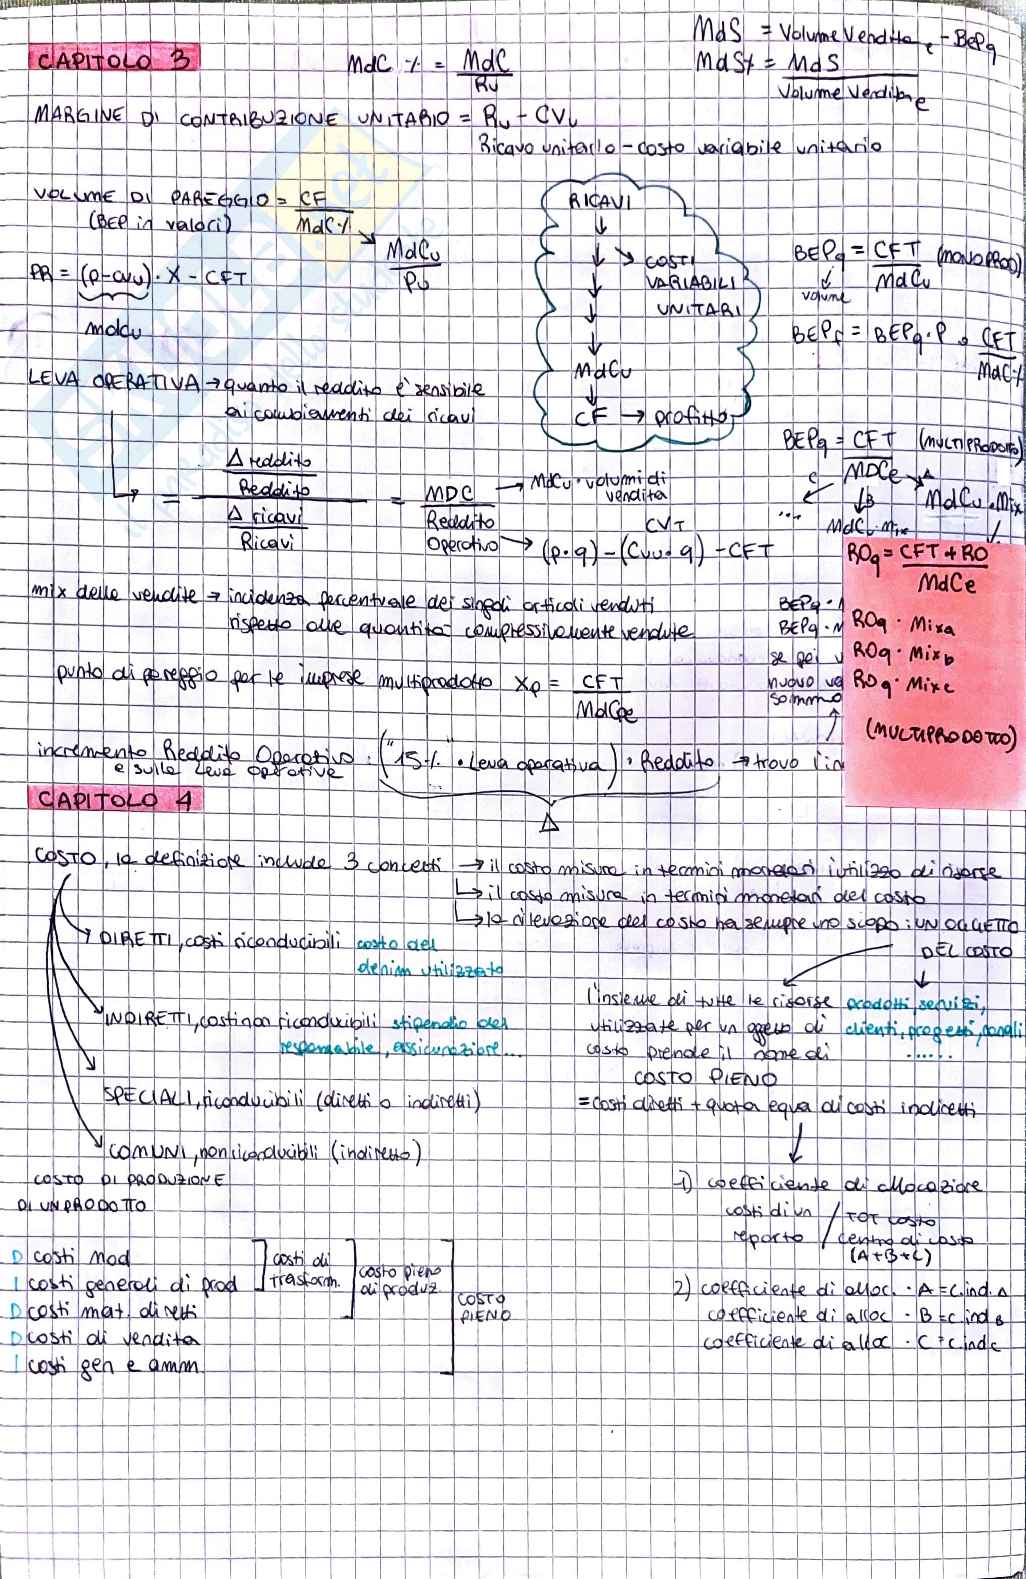 MdS = Volume Vendite e - BePq
CAPITOLO 3
MdC % = MdC / Ru
MdS% = MdS / Volume Vendibne e
MARGINE DI CONTRIBUZIONE UNITARIO = Ru - CVu
Ricavo unitario - costo variabile unitario
VOLUME DI PAREGGIO = CF / MdC%
(BEP in valori)
MdCu / Pu
PR = (p-cvu) · X - CFT
mdcu
RICAVI
COSTI
VARIABILI
UNITARI
MdCu
CF → profitto
BEPq = CFT / MdCu (MONOPROD)
volume
BEPf = BEPq · P o CFT / MdC%
LEVA OPERATIVA → quanto il reddito è sensibile
ai cambiamenti dei ricavi
= Δ reddito / Reddito / Δ ricavi / Ricavi = MDC / Reddito Operativo
→ MdCu · volumi di
vendita
CVT
→ (p·q) - (Cvu·q) - CFT
BEPq = CFT / MDCe (MULTIPRODOTTO)
C B A
... MdCu·Mix MdCu·Mix
%
mix delle vendite → incidenza percentuale dei singoli articoli venduti
rispetto alle quantità compressivamente vendute
BEPq ·
BEPq · M
se poi v
nuovo va
somma
ROq = CFT + RO / MdCe
ROq · Mixa
ROq · Mixb
ROq · Mixc
(MULTIPRODOTTO)
punto di pareggio per le imprese multiprodotto Xp = CFT / MdCpe
incremento Reddito Operativo : ("15%" · Leva operativa) · Reddito → trovo l'in
e sulla Leva operativa
...
Δ
CAPITOLO 4
COSTO, la definizione include 3 concetti → il costo misura in termini monetari l'utilizzo di risorse
→ il costo misura in termini monetari del costo
→ la rilevazione del costo ha sempre uno scopo : UN OGGETTO
DEL COSTO
DIRETTI, costi riconducibili costo del
denim utilizzato
INDIRETTI, costi non riconducibili stipendio del
responsabile, assicurazione...
SPECIALI, riconducibili (diretti o indiretti)
COMUNI, non riconducibili (indiretto)
l'insieme di tutte le risorse prodotti, servizi,
utilizzate per un oggetto di clienti, progetti, canali
costo prende il nome di ......
COSTO PIENO
= costi diretti + quota equa di costi indiretti
COSTO DI PRODUZIONE
DI UN PRODOTTO
1) coefficiente di allocazione
costi di un reparto / TOT costo centro di costo
(A+B+C)
D costi mod
I costi generali di prod
costi di trasform.
D costi mat. diretti
costo pieno di produz
D costi di vendita
I costi gen e amm.
COSTO PIENO
2) coefficiente di alloc. · A = c.ind. A
coefficiente di alloc · B = c.ind B
coefficiente di alloc · C = c.ind c